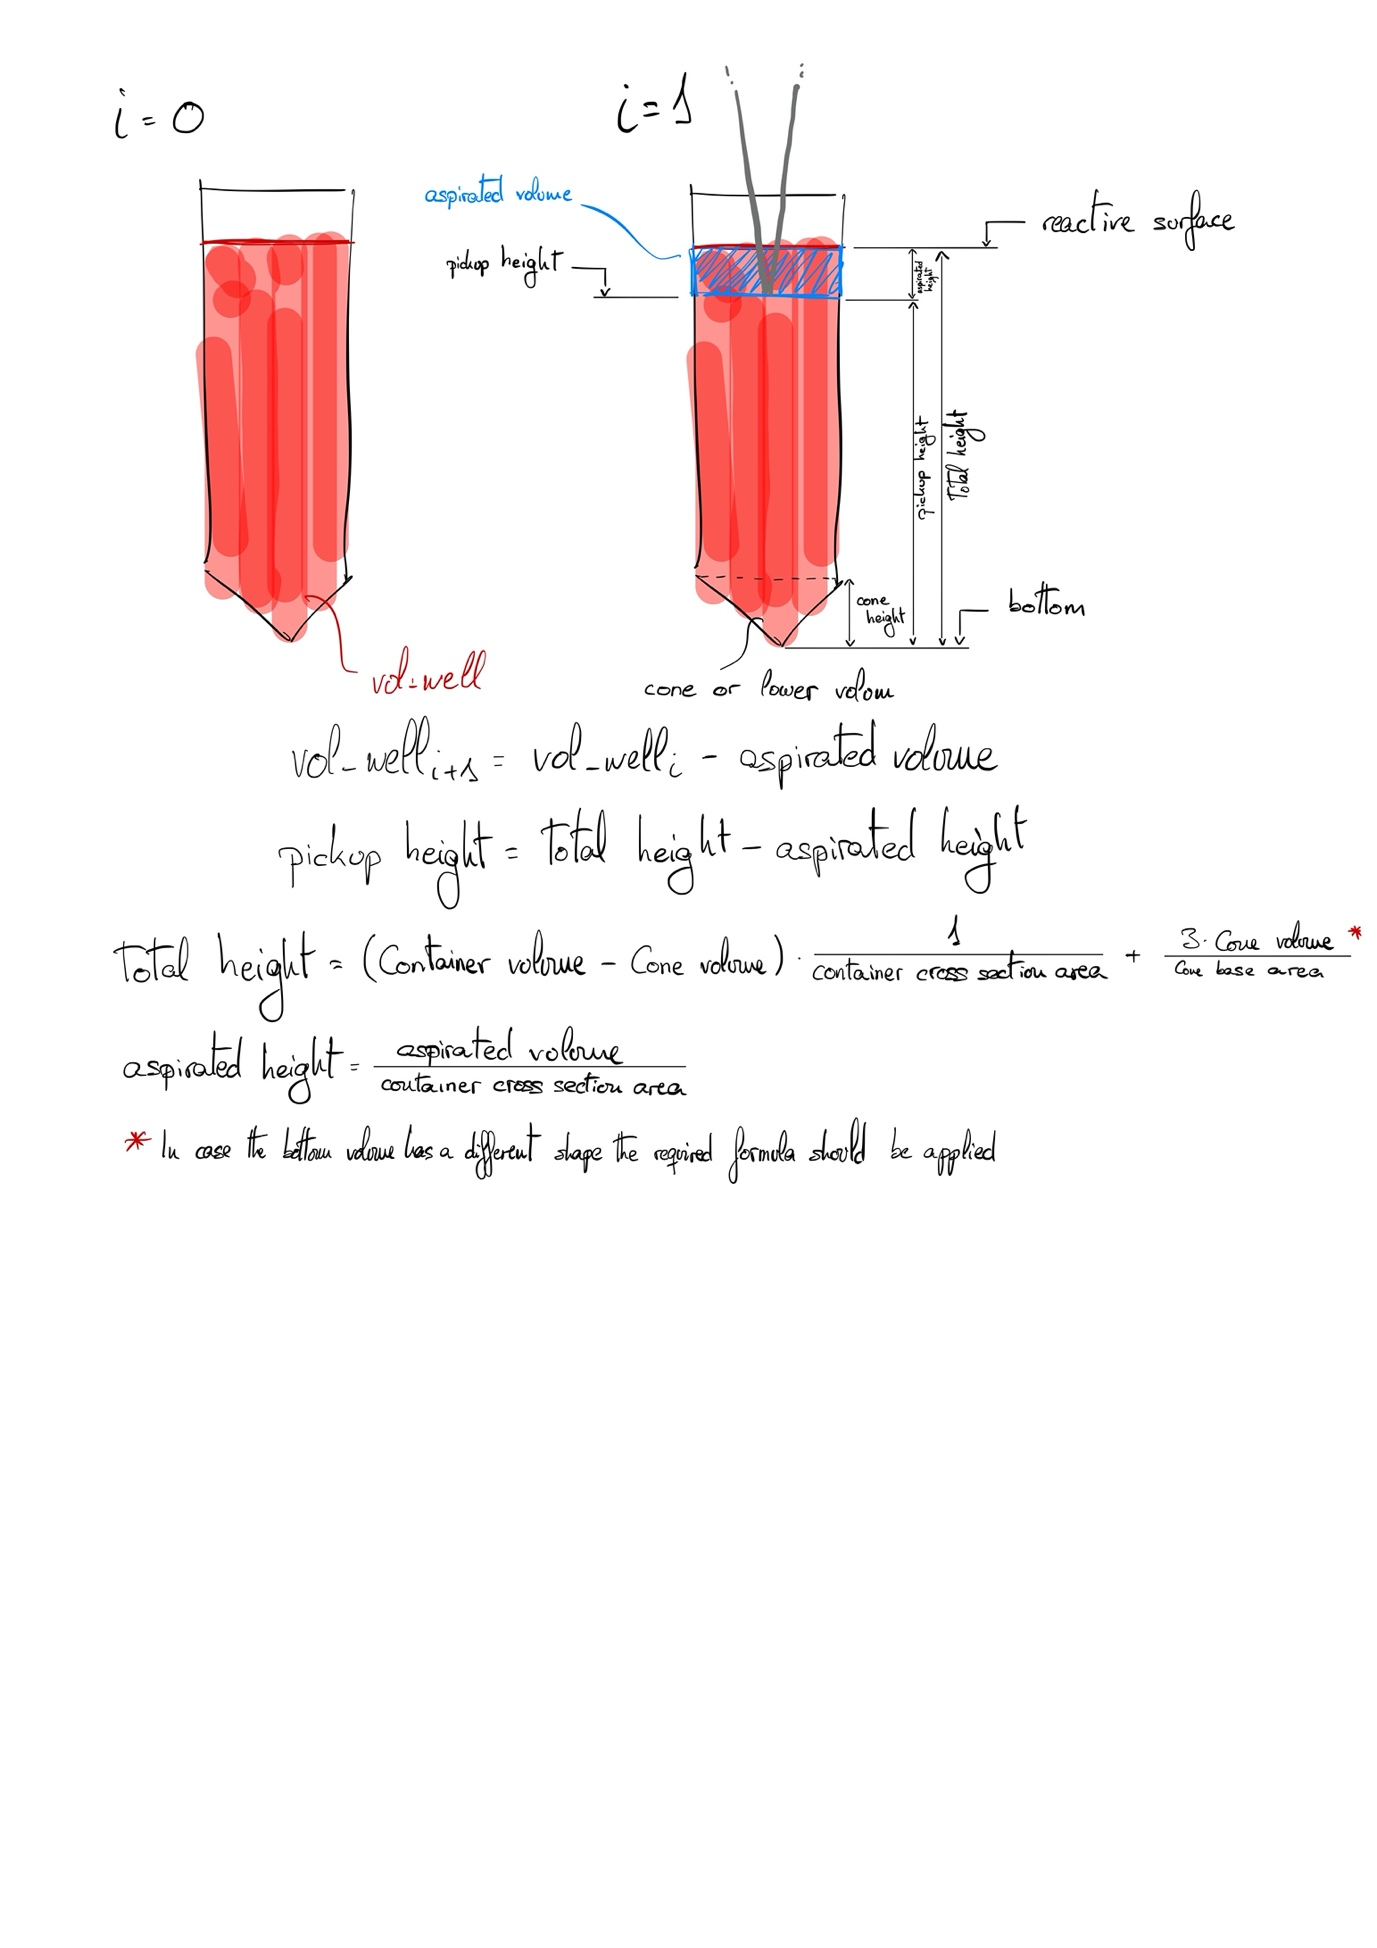 i = 0
i = 1
aspirated volume
pickup height
reactive surface
aspirated height
pickup height
Total height
cone height
bottom
vol-well
cone or lower volum
vol_well i+1 = vol_well i - aspirated volume
pickup height = Total height - aspirated height
Total height = (Container volume - Cone volume) · 1 / container cross section area + 3 · Cone volume / Cone base area *
aspirated height = aspirated volume / container cross section area
* In case the bottom volume has a different shape the required formula should be applied